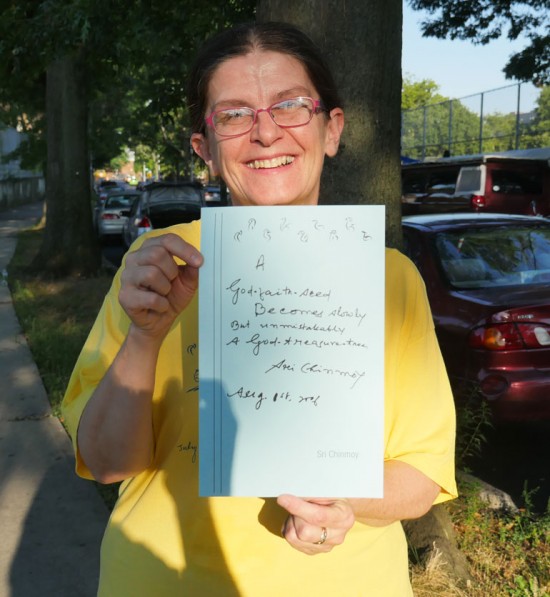 A
God-faith-seed
Becomes slowly
But unmistakably
A God-treasure-tree
Sri Chinmoy
Aug 1st,
Sri Chinmoy
July